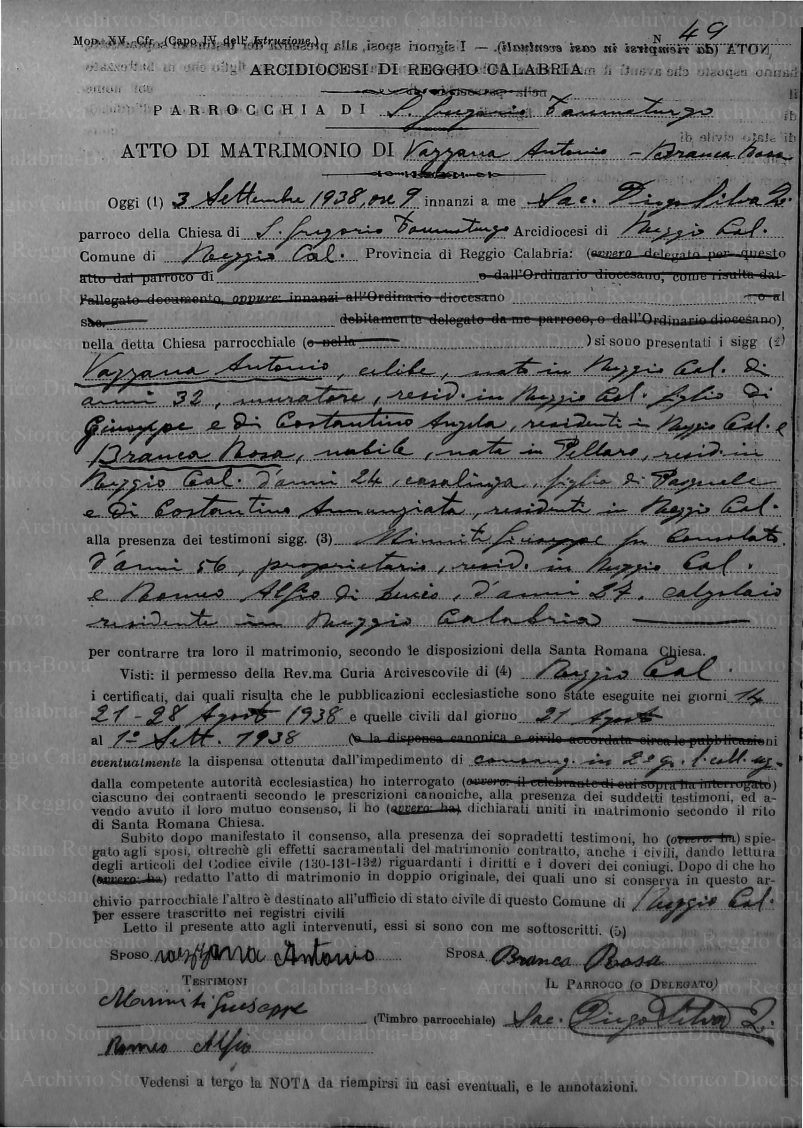 Mod. XV. Cfr. (Capo IV dell' Istruzione.)
N 49
ARCIDIOCESI DI REGGIO CALABRIA
PARROCCHIA DI S. Gregorio Taumaturgo
ATTO DI MATRIMONIO DI Vazzana Antonio - Branca Rosa
Oggi (1) 3 Settembre 1938, ore 9 innanzi a me Sac. Diego Silva
parroco della Chiesa di S. Gregorio Taumaturgo Arcidiocesi di Reggio Cal.
Comune di Reggio Cal. Provincia di Reggio Calabria: (ovvero delegato per questo
atto dal parroco di o dall'Ordinario diocesano, come risulta dal-
l'allegato documento, oppure: innanzi all'Ordinario diocesano o al
sac. debitamente delegato da me parroco, o dall'Ordinario diocesano)
nella detta Chiesa parrocchiale (o nella ) si sono presentati i sigg (2)
Vazzana Antonio, celibe, nato in Reggio Cal. di
anni 32, muratore, resid. in Reggio Cal. figlio di
Giuseppe e di Costantino Angela, residenti in Reggio Cal. e
Branca Rosa, nubile, nata in Pellaro, resid. in
Reggio Cal. d'anni 24, casalinga, figlia di Pasquale
e di Costantino Annunziata, residenti in Reggio Cal.
alla presenza dei testimoni sigg. (3) Minniti Giuseppe fu Consolato
d'anni 56, proprietario, resid. in Reggio Cal.
e Romeo Alfio di Lucio, d'anni 27, calzolaio
residente in Reggio Calabria
per contrarre tra loro il matrimonio, secondo le disposizioni della Santa Romana Chiesa.
Visti: il permesso della Rev.ma Curia Arcivescovile di (4) Reggio Cal.
i certificati, dai quali risulta che le pubblicazioni ecclesiastiche sono state eseguite nei giorni 14
21 - 28 Agosto 1938 e quelle civili dal giorno 21 Agosto
al 1° Sett. 1938 (o la dispensa canonica e civile accordata circa le pubblicazioni
eventualmente la dispensa ottenuta dall'impedimento di consang. in 2° gr. l. coll. eg.
dalla competente autorità ecclesiastica) ho interrogato (ovvero: il celebrante di cui sopra ha interrogato)
ciascuno dei contraenti secondo le prescrizioni canoniche, alla presenza dei suddetti testimoni, ed a-
vendo avuto il loro mutuo consenso, li ho (ovvero: ha) dichiarati uniti in matrimonio secondo il rito
di Santa Romana Chiesa.
Subito dopo manifestato il consenso, alla presenza dei sopradetti testimoni, ho (ovvero: ha) spie-
gato agli sposi, oltrechè gli effetti sacramentali del matrimonio contratto, anche i civili, dando lettura
degli articoli del Codice civile (130-131-132) riguardanti i diritti e i doveri dei coniugi. Dopo di che ho
(ovvero: ha) redatto l'atto di matrimonio in doppio originale, dei quali uno si conserva in questo ar-
chivio parrocchiale l'altro è destinato all'ufficio di stato civile di questo Comune di Reggio Cal.
per essere trascritto nei registri civili
Letto il presente atto agli intervenuti, essi si sono con me sottoscritti. (5)
SPOSO Vazzana Antonio SPOSA Branca Rosa
TESTIMONI IL PARROCO (O DELEGATO)
Minniti Giuseppe (Timbro parrocchiale) Sac. Diego Silva
Romeo Alfio
Vedensi a tergo la NOTA da riempirsi in casi eventuali, e le annotazioni.